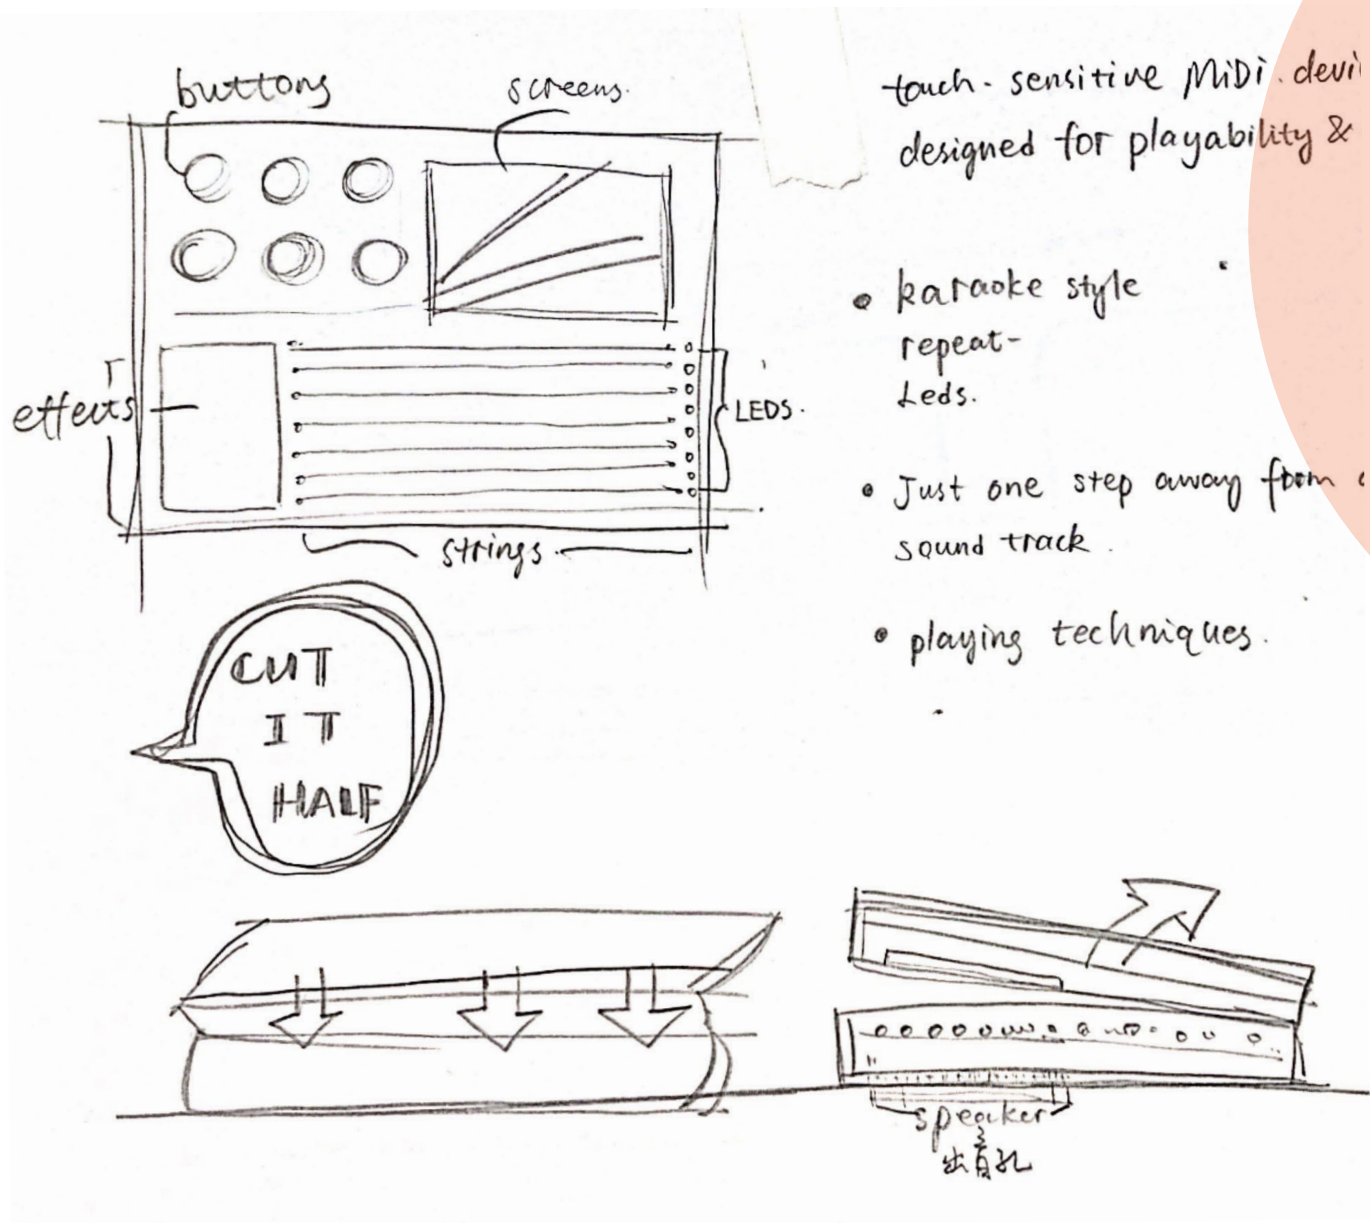 buttons
screens.
effects
LEDS.
strings
touch-sensitive MiDi devi
designed for playability &
• karaoke style
repeat-
Leds.
• Just one step away from
sound track.
• playing techniques.
CUT
IT
HALF
speaker
出音孔